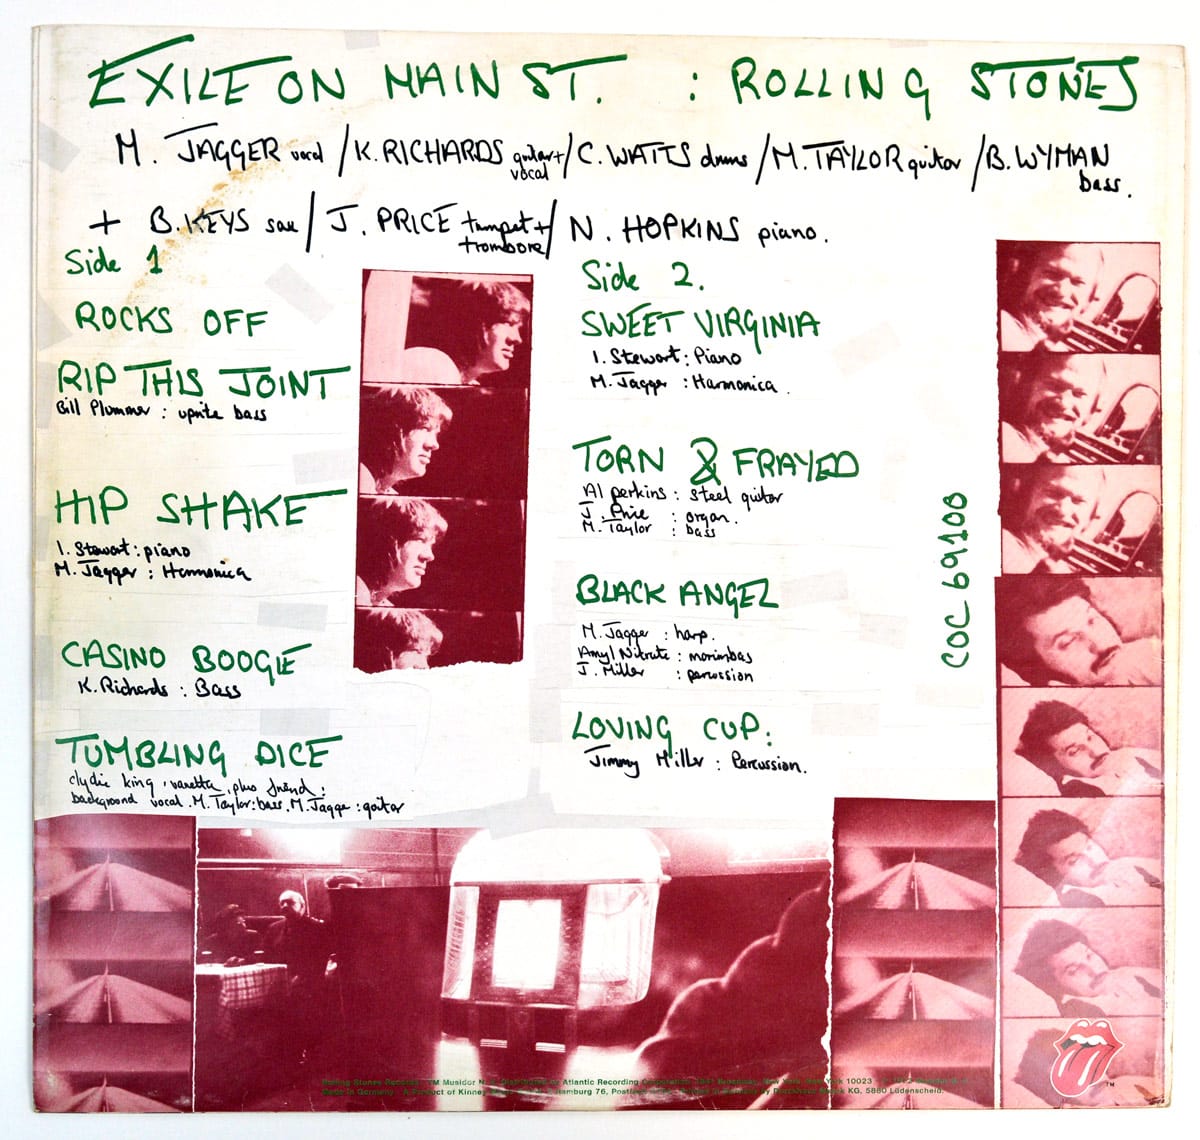 EXILE ON MAIN ST. : ROLLING STONES
M. JAGGER vocal / K. RICHARDS guitar + vocal / C. WATTS drums / M. TAYLOR guitar / B. WYMAN bass.
+ B. KEYS sax / J. PRICE trumpet + trombone / N. HOPKINS piano.
Side 1
ROCKS OFF
RIP THIS JOINT
Bill Plummer : uprite bass
HIP SHAKE
I. Stewart : piano
M. Jagger : Harmonica
CASINO BOOGIE
K. Richards : Bass
TUMBLING DICE
clydie king, vanetta, plus friend :
background vocal. M. Taylor : bass. M. Jagge : guitar
Side 2.
SWEET VIRGINIA
I. Stewart : Piano
M. Jagger : Harmonica.
TORN & FRAYED
Al perkins : steel guitar
J. Price : organ.
M. Taylor : bass
BLACK ANGEL
M. Jagge : harp.
Amyl Nitrate : marimbas
J. Miller : percussion
LOVING CUP :
Jimmy Miller : Percussion.
COC 69100
Rolling Stones Records, TM Musidor N. Distributed by Atlantic Recording Corporation, Broadway, New York, New York 10023
Made in Germany. A Product of Kinney Hamburg 76, KG, 5880 Lüdenscheid.
TM